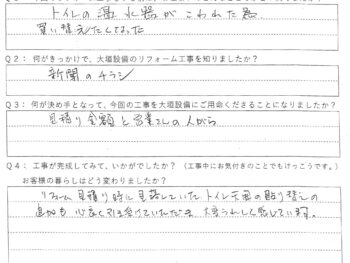 トイレの温水器がこわれた為
買い替えたくなった
Q2：何がきっかけで、大垣設備のリフォーム工事を知りましたか？
新聞のチラシ
Q3：何が決め手となって、今回の工事を大垣設備にご用命くださることになりましたか？
見積り金額と営業さんの人がら
Q4：工事が完成してみて、いかがでしたか？（工事中にお気付きのことでもけっこうです。）
お客様の暮らしはどう変わりましたか？
リフォーム見積り時に見落していたトイレ天国の貼り替えの
追加も心良く引き受けていただき、大変うれしく感じています。